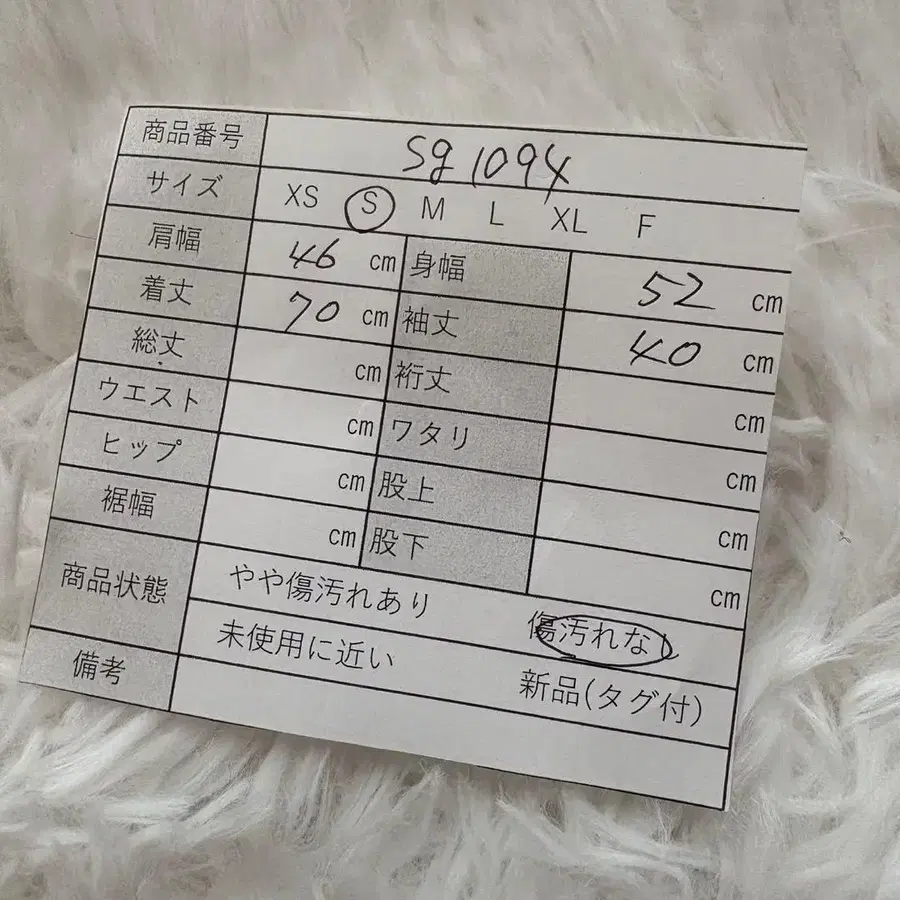 商品番号 sg1094
サイズ XS S M L XL F
肩幅 46 cm 身幅 52 cm
着丈 70 cm 袖丈 40 cm
総丈 cm 裄丈 cm
ウエスト cm ワタリ cm
ヒップ cm 股上 cm
裾幅 cm 股下 cm
商品状態 やや傷汚れあり 傷汚れなし
未使用に近い 新品(タグ付)
備考